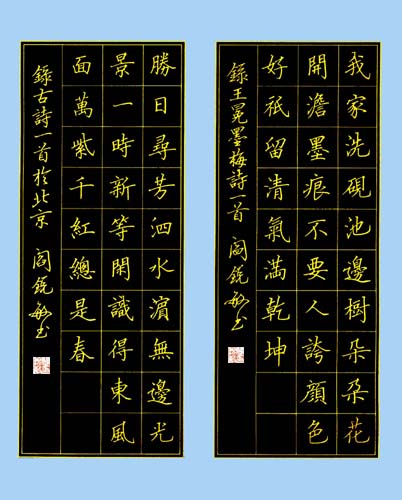 我家洗硯池邊樹朵朵花
開澹墨痕不要人誇顏色
好祇留清氣滿乾坤
錄王冕墨梅詩一首 閻銳敏书
勝日尋芳泗水濵無邊光
景一時新等閑識得東風
面萬紫千紅總是春
錄古詩一首於北京 閻銳敏书